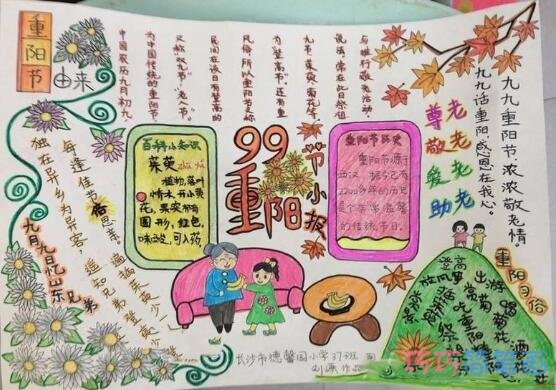 重阳节
由来
中国农历九月初九,
为中国传统的重阳节,
又称"双九节""老人节"。
民间在该日有登高的
风俗,所以重阳节又称
为"登高节",还有重
九节、茱萸、菊花等,
说法常在此日祭祖
与推行敬老活动,
尊老
敬老
爱老
助老
九九话重阳,感恩在我心。
九九重阳节,浓浓敬老情
百科小知识
茱萸zhū yú
植物,落叶
小乔木,开小黄
花,果实椭有
圆形,红色,
味酸,可入药
99
重阳
节小报
重阳节历史
重阳节源于
西汉,据今已有
2200多年的历史
是个幸重温馨
的传统节日。
九月九日忆山东兄弟
独在异乡为异客,
每逢佳节倍思亲。
遥知兄弟登高处,
遍插茱萸少一人。
重阳习俗
登高
放风筝
出游
赏菊
吃重阳糕
长沙市德馨园小学37班